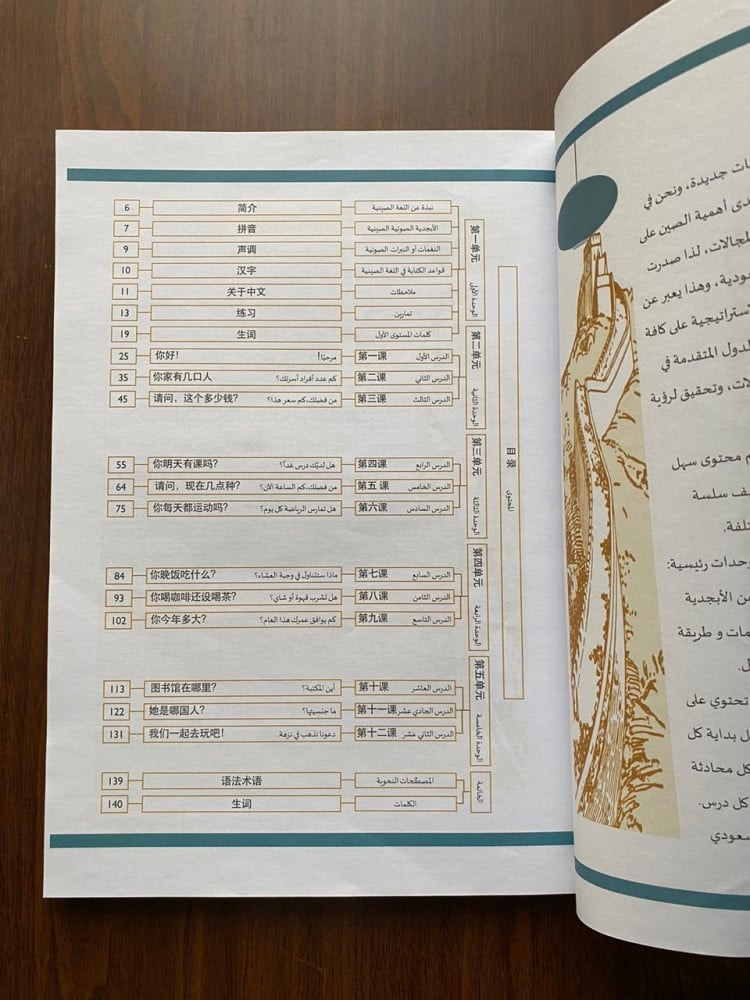 目录
المحتوى
第一单元
الوحدة الأولى
نبذة عن اللغة الصينية 简介 6
الأبجدية الصوتية الصينية 拼音 7
النغمات أو النبرات الصوتية 声调 9
قواعد الكتابة في اللغة الصينية 汉字 10
ملاحظات 关于中文 11
تمارين 练习 13
كلمات المستوى الأول 生词 19
第二单元
الوحدة الثانية
الدرس الأول 第一课 مرحبًا! 你好! 25
الدرس الثاني 第二课 كم عدد أفراد أسرتك؟ 你家有几口人 35
الدرس الثالث 第三课 من فضلك، كم سعر هذا؟ 请问，这个多少钱? 45
第三单元
الوحدة الثالثة
الدرس الرابع 第四课 هل لديك درس غداً؟ 你明天有课吗? 55
الدرس الخامس 第五 课 من فضلك، كم الساعة الآن؟ 请问，现在几点种? 64
الدرس السادس 第六课 هل تمارس الرياضة كل يوم؟ 你每天都运动吗? 75
第四单元
الوحدة الرابعة
الدرس السابع 第七课 ماذا ستتناول في وجبة العشاء؟ 你晚饭吃什么? 84
الدرس الثامن 第八课 هل تشرب قهوة أو شاي؟ 你喝咖啡还设喝茶? 93
الدرس التاسع 第九课 كم يوافق عمرك هذا العام؟ 你今年多大? 102
第五单元
الوحدة الخامسة
الدرس العاشر 第十课 أين المكتبة؟ 图书馆在哪里? 113
الدرس الحادي عشر 第十一课 ما جنسيتها؟ 她是哪国人? 122
الدرس الثاني عشر 第十二课 دعونا نذهب في نزهة. 我们一起去玩吧! 131
الخاتمة
المصطلحات النحوية 语法术语 139
الكلمات 生词 140
جديدة، ونحن في
أهمية الصين على
لمجالات، لذا صدرت
ودية، وهذا يعبر عن
ستراتيجية على كافة
لدول المتقدمة في
وتحقيق لرؤية
محتوى سهل
سلسة
تلفة.
وحدات رئيسية:
ن الأبجدية
مات و طريقة
تحتوي على
بداية كل
كل محادثة
كل درس.
سعودي